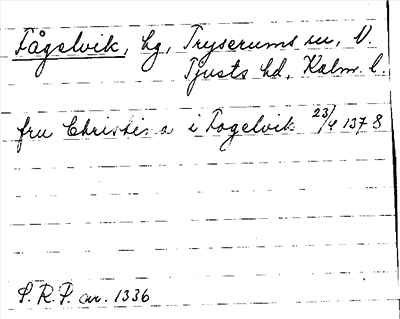 Fågelvik, hg, Tryserums sn, N.
Tjusts hd, Kalm. l.
fru Christina i Fogelvik 23/4 1378
S.R.P. nr. 1336